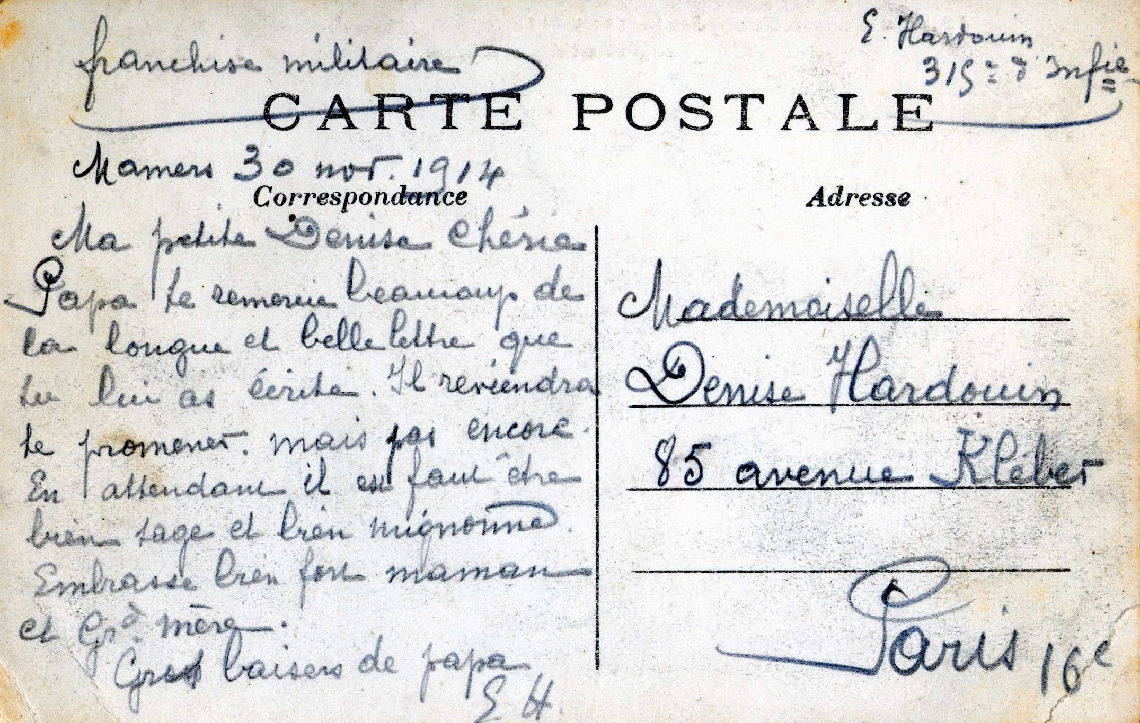 franchise militaire
E. Hardouin
315e d'Infie
CARTE POSTALE
Mamers 30 nov. 1914
Correspondance
Ma petite Denise Chérie
Papa te remercie beaucoup de
la longue et belle lettre que
tu lui as écrite. Il reviendra
te promener. mais pas encore.
En attendant il faut être
bien sage et bien mignonne.
Embrasse bien fort maman
et Grd mère.
Gros baisers de papa
E H.
Adresse
Mademoiselle
Denise Hardouin
85 avenue Kléber
Paris 16e